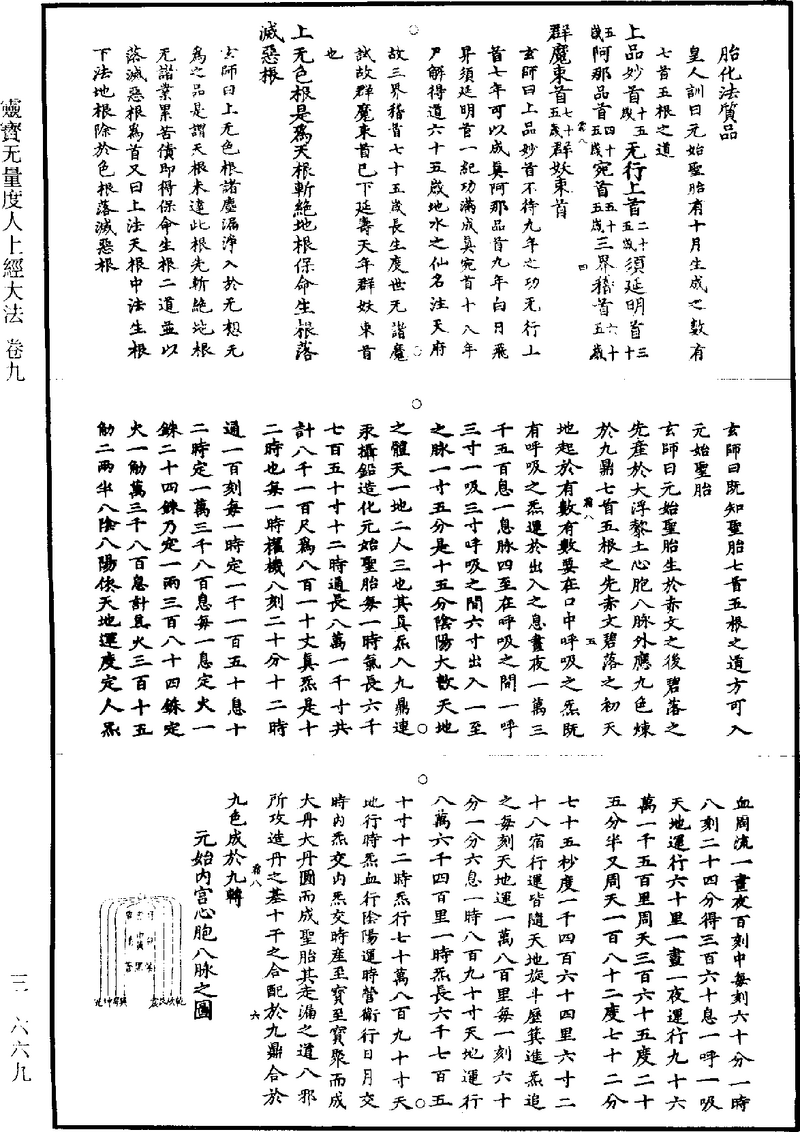 胎化法質品
皇人訓曰元始聖胎有十月生成之數有
七首五根之道
上品妙首十五歲无行上首二十五歲須延明首三十
五歲阿那品首四十五歲宛首五十五歲三界稽首六十五歲
群魔束首七十五歲群妖束首
玄師曰上品妙首不待九年之功无行上
首七年可以成真阿那品首九年白日飛
昇須延明首一紀功滿成真宛首十八年
尸解得道六十五歲地水之仙名注天府
故三界稽首七十五歲長生度世无諸魔
試故群魔束首已下延壽天年群妖束首
也
上无色根是為天根斬絕地根保命生根落
滅惡根
玄師曰上无色根諸塵漏淨入於无想无
為之品是謂天根未達此根先斬絕地根
无諸業累苦債即得保命生根二道並以
落滅惡根為首又曰上法天根中法生根
下法地根除於色根落滅惡根
玄師曰既知聖胎七首五根之道方可入
元始聖胎
玄師曰元始聖胎生於赤文之後碧落之
先產於大浮黎土心胞八脉外應九色煉
於九鼎七首五根之先赤文碧落之初天
地起於有數有數要在口中呼吸之炁既
有呼吸之炁運於出入之息晝夜一萬三
千五百息一息脉四至在呼吸之間一呼
三寸一吸三寸呼吸之間六寸出入一至
之脉一寸五分是十五分陰陽大數天地
之體天一地二人三也其真炁入九鼎連
汞攝鉛造化元始聖胎每一時氣長六千
七百五十寸十二時通長八萬一千寸共
計八千一百尺為八百一十丈真炁是十
二時也每一時權機八刻二十分十二時
通一百刻每一時定一千一百五十息十
二時定一萬三千八百息每一息定火一
銖二十四銖乃定一兩三百八十四銖定
火一觔萬三千八百息計息火三百十五
觔二兩半八陰八陽俠天地運度定人炁
血周流一晝夜百刻中每刻六十分一時
八刻二十四分得三百六十息一呼一吸
天地運行六十里一晝一夜運行九十六
萬一千五百里周天三百六十五度二十
五分半又周天一百八十二度七十二分
七十五秒度一千四百六十四里六寸二
十八宿行運皆隨天地旋斗歷箕進炁追
之每刻天地運一萬八百里每一刻六十
分一分六息一時八百九十寸天地運行
八萬六千四百里一時炁長六千七百五
十寸十二時炁行七十萬八百九十寸天
地行時炁血行陰陽運時營衛行日月交
時內炁交內炁交時產至寶至寶聚而成
大丹大丹圓而成聖胎其走漏之道八邪
所攻造丹之基十干之合配於九鼎合於
九色成於九轉
元始內宮心胞八脉之圖
靈寶无量度人上經大法 卷九
三·六六九